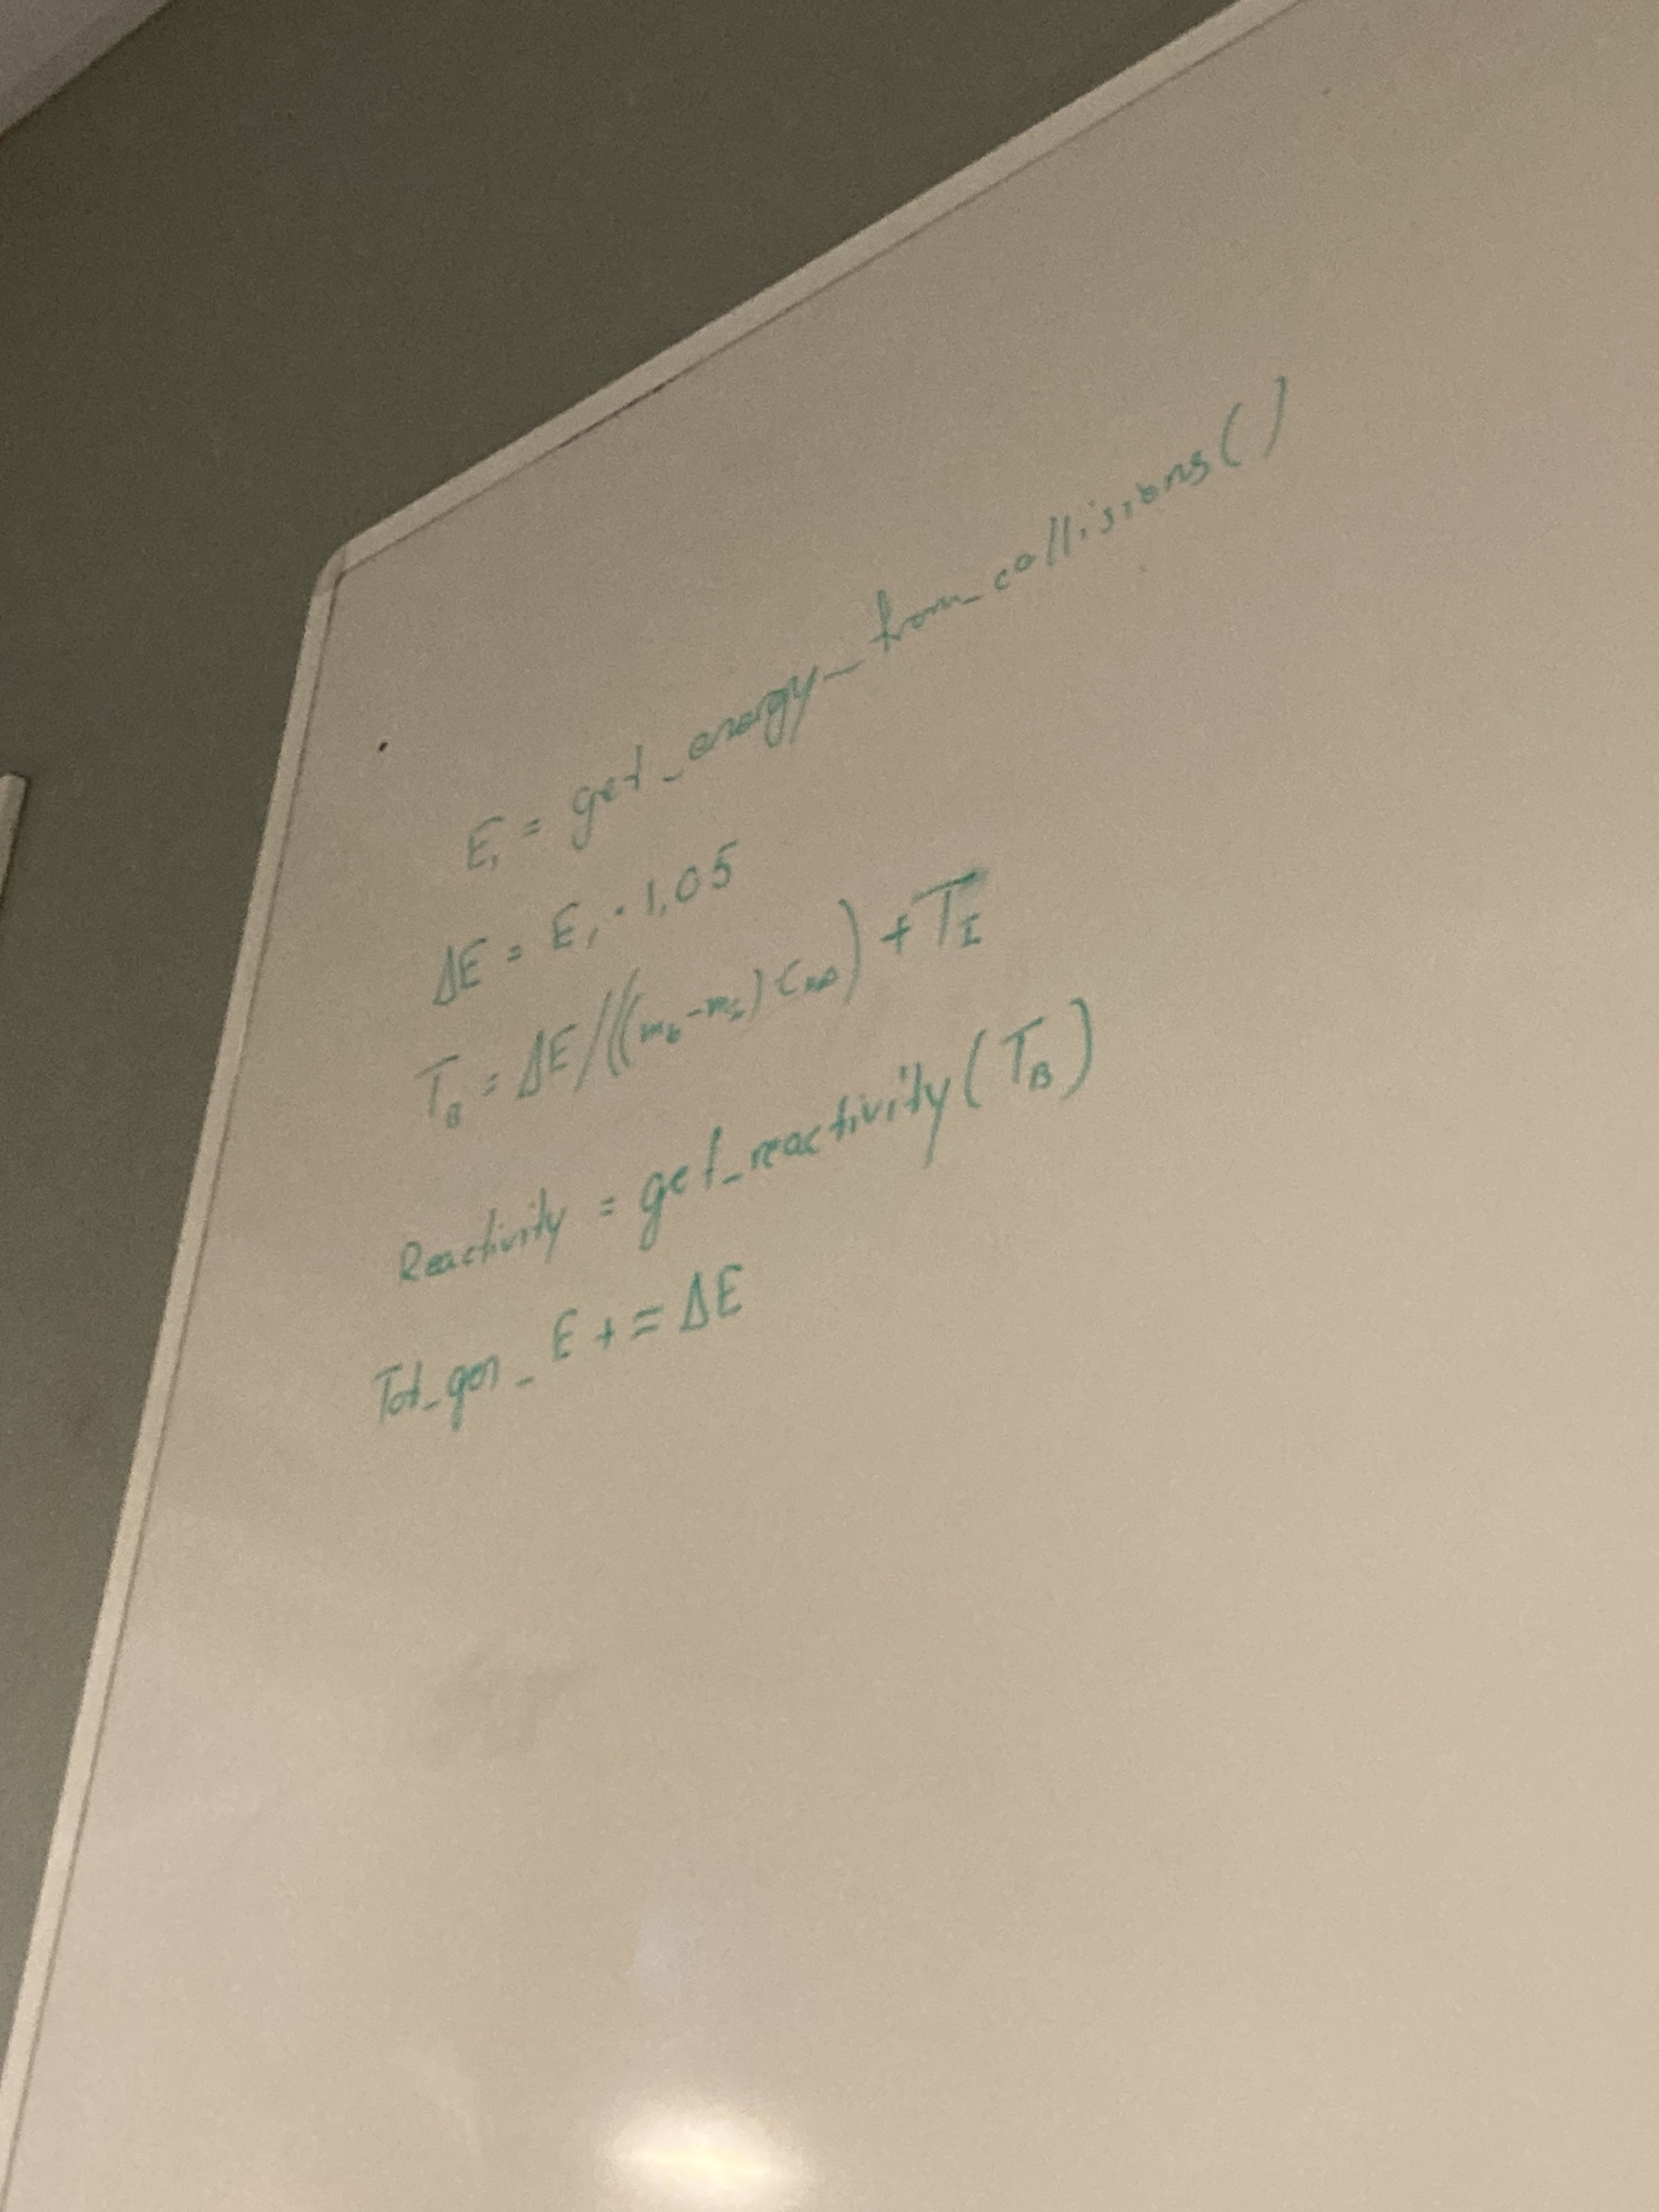 E₁ = get_energy_from_collisions()
ΔE = E₁ · 1,05
T_B = ΔE/((m_b-m_s) ) + T_I
Reactivity = get_reactivity(T_B)
Tot_gen_E += ΔE